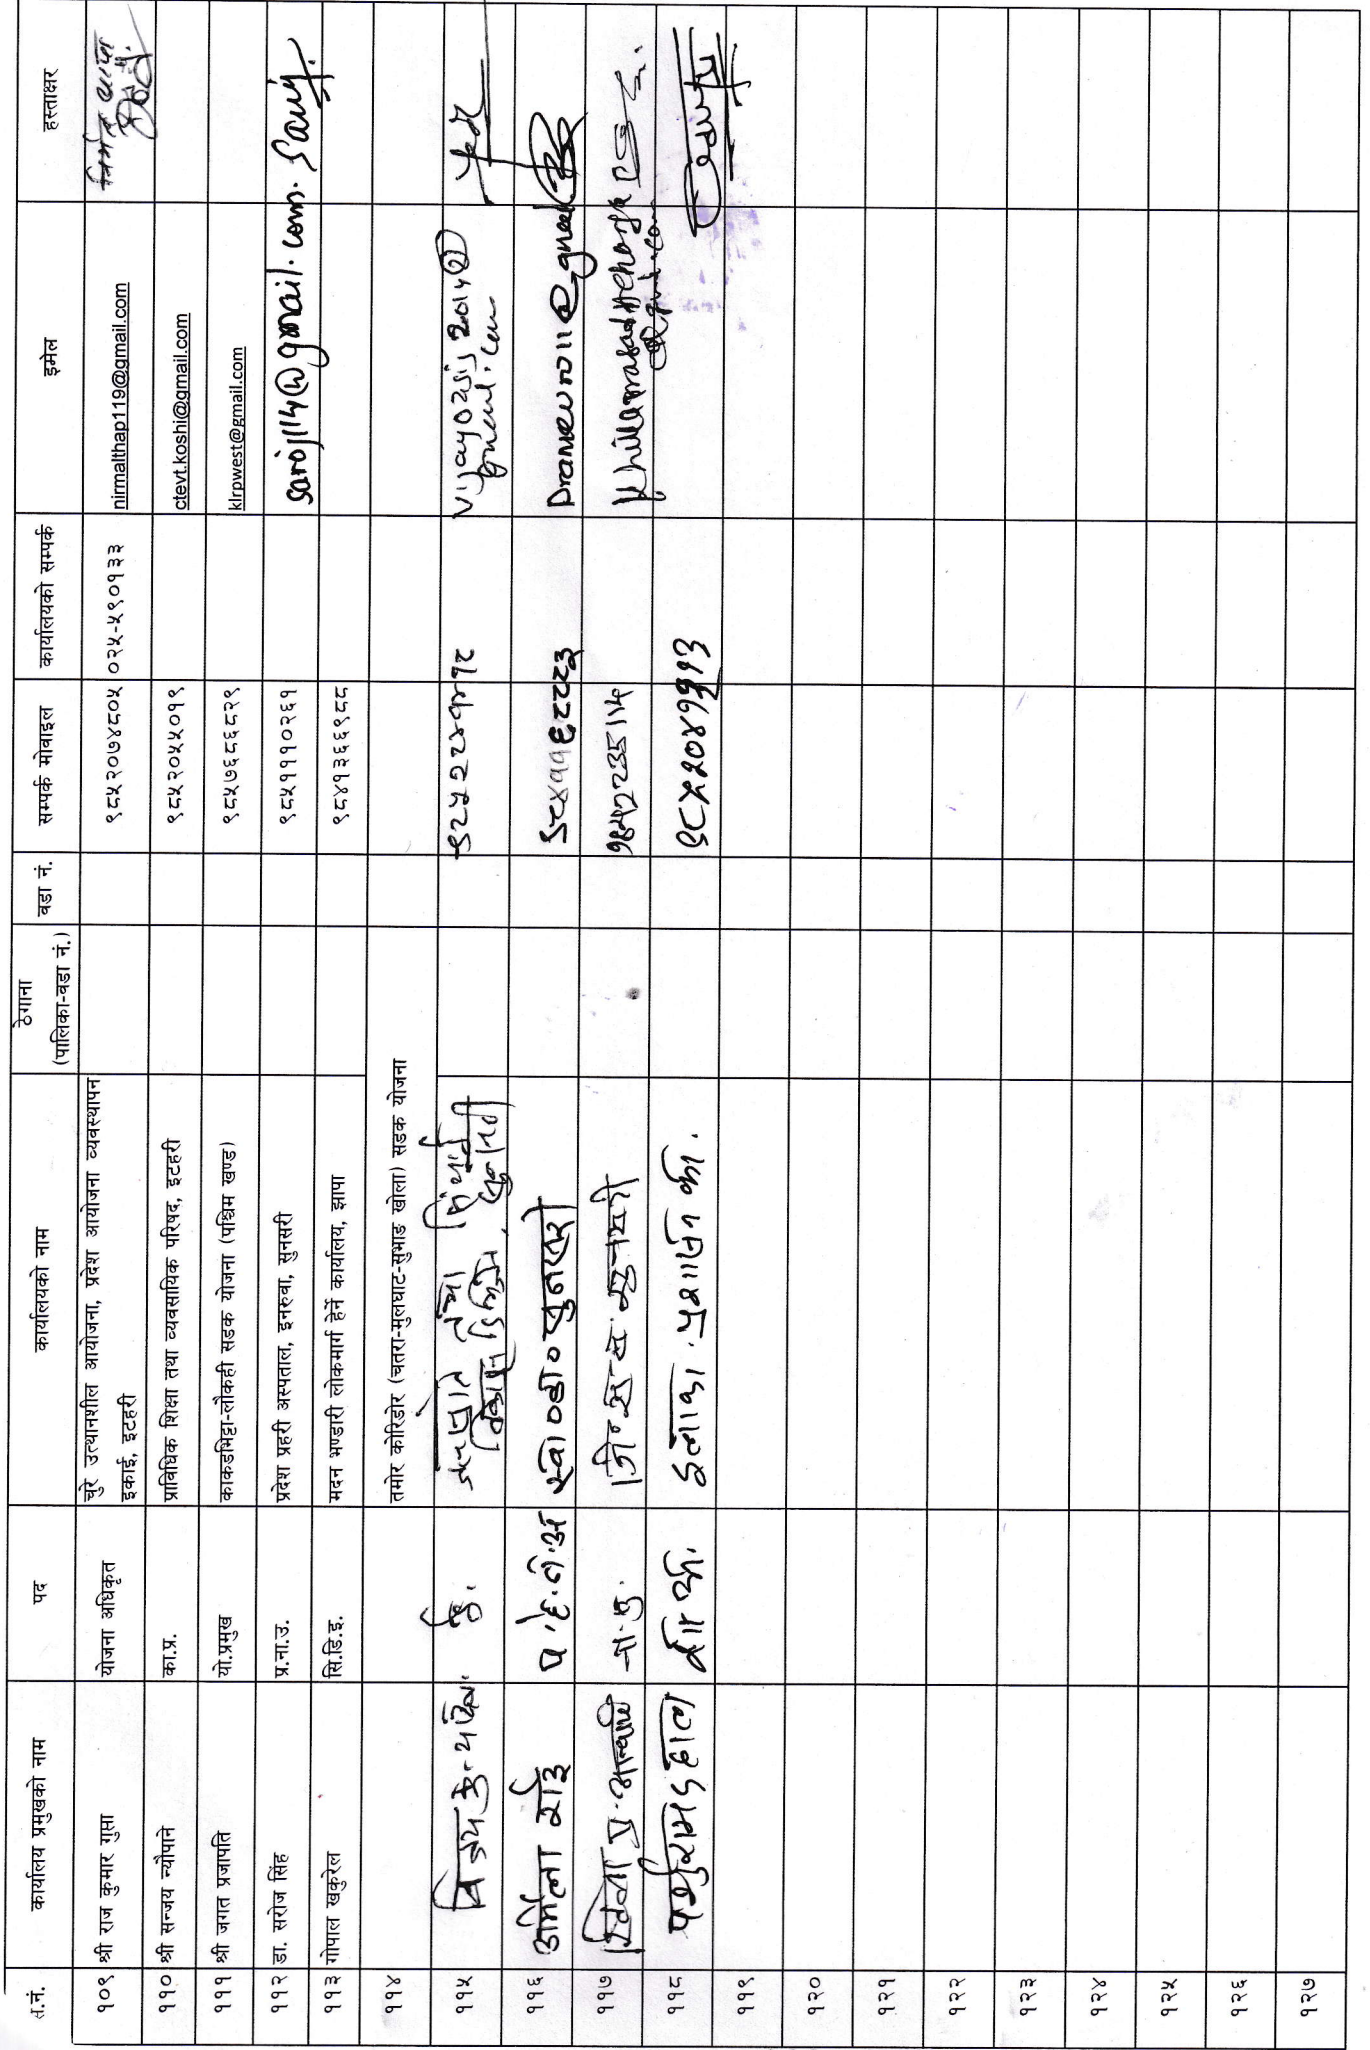 सं.नं. कार्यालय प्रमुखको नाम पद कार्यालयको नाम ठेगाना (पालिका-वडा नं.) वडा नं. सम्पर्क मोवाइल कार्यालयको सम्पर्क इमेल हस्ताक्षर
१०९ श्री राज कुमार गुप्ता योजना अधिकृत चुरे उत्थानशील आयोजना, प्रदेश आयोजना व्यवस्थापन ९८५२०७४८०५ ०२५-५९०१३३ nirmalthap119@gmail.com
इकाई, इटहरी
११० श्री सन्जय न्यौपाने का.प्र. प्राविधिक शिक्षा तथा व्यवसायिक परिषद, इटहरी ९८५२०५५०१९ ctevt.koshi@gmail.com
१११ श्री जगत प्रजापति यो.प्रमुख काकडभिट्टा-लौकही सडक योजना (पश्चिम खण्ड) ९८५७६८६८२९ klrpwest@gmail.com
११२ डा. सरोज सिंह प्र.ना.उ. प्रदेश प्रहरी अस्पताल, इनरुवा, सुनसरी ९८५१११०२६१ saroj114@gmail.com. Saroj
११३ गोपाल खकुरेल सि.डि.इ. मदन भण्डारी लोकमार्ग हेर्ने कार्यालय, झापा ९८४१३६६९८८
११४ तमोर कोरिडोर (चतरा-मुलघाट-सुभाङ खोला) सडक योजना
११५ विजय कु. यादव ई. जलस्रोत तथा सिंचाई
विकास डिभिजन, सुनसरी
११६ उर्मिला
११७ खिला प्र. आचार्य जि.स.स. सुनसरी 9842235114
११८ पर्शुराम दाहाल इलाका प्रशासन का. ९८५२०४११३
११९
१२०
१२१
१२२
१२३
१२४
१२५
१२६
१२७